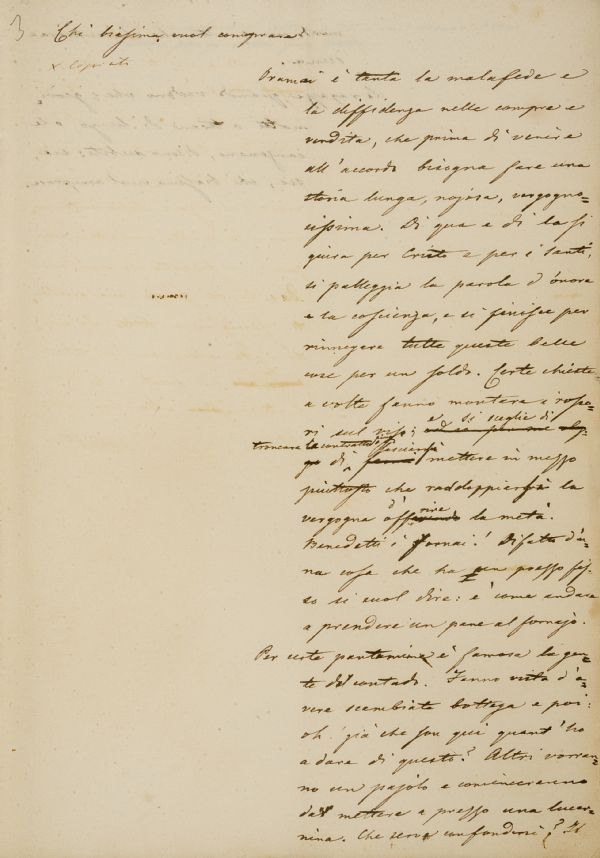 3
Chi biasima vuol comprare
x Copiato
Oramai è tanta la malafede e
la diffidenza nelle compra e
vendita, che prima di venire
all'accordo bisogna fare una
storia lunga, nojosa, vergogno=
sissima. Di qua e di la si
giura per Cristo e per i santi,
si palleggia la parola d'onore
e la coscienza, e si finisce per
rinnegare tutte queste belle
cose per un soldo. Certe chieste
a volte fanno montare i rosso
ri sul viso; e si sceglie di
troncare la contratto
di lasciarsi mettere in mezzo
piuttosto che raddoppiarsi la
vergogna d'offrire la metà.
Benedetti i fornai! Difatti d'u=
na cosa che ha un prezzo fis=
so si suol dire: è come andare
a prendere un pane al fornajo.
Per certe pantomine è famosa la gen=
te del contado. Fanno vista d'a=
vere scambiato bottega e poi:
oh! già che son qui quant'ho
a dare di questo? Altri vorran=
no un pajolo e cominceranno
dal mettere a prezzo una lucer=
nina. Che serve confondersi? Il